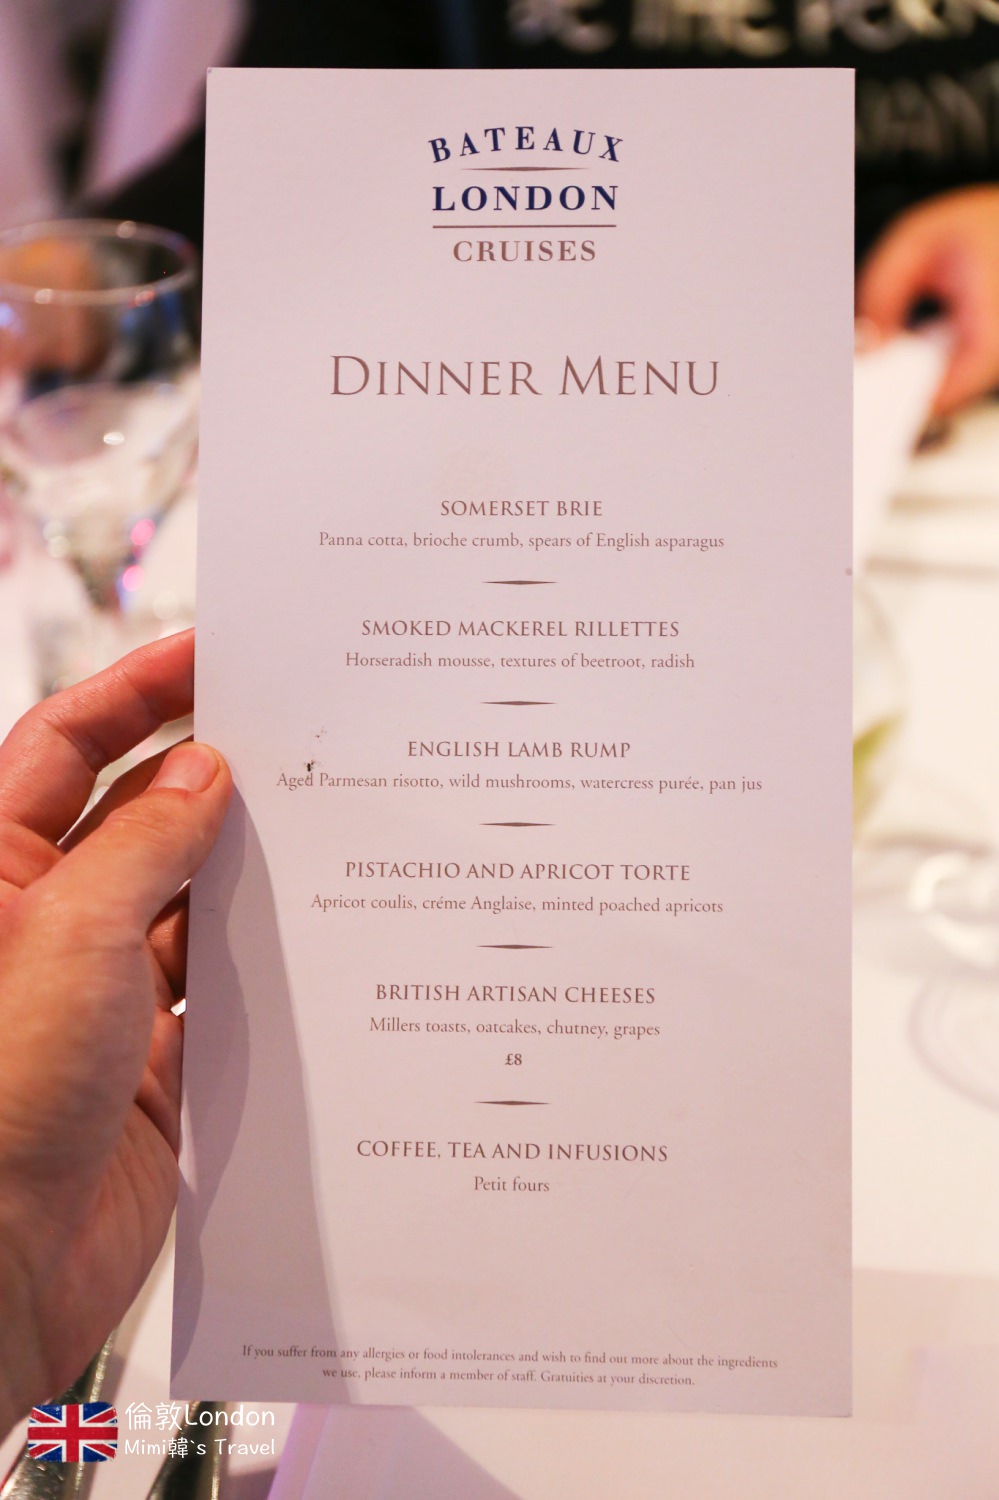 BATEAUX
LONDON
CRUISES
DINNER MENU
SOMERSET BRIE
Panna cotta, brioche crumb, spears of English asparagus
SMOKED MACKEREL RILLETTES
Horseradish mousse, textures of beetroot, radish
ENGLISH LAMB RUMP
Aged Parmesan risotto, wild mushrooms, watercress purée, pan jus
PISTACHIO AND APRICOT TORTE
Apricot coulis, créme Anglaise, minted poached apricots
BRITISH ARTISAN CHEESES
Millers toasts, oatcakes, chutney, grapes
£8
COFFEE, TEA AND INFUSIONS
Petit fours
If you suffer from any allergies or food intolerances and wish to find out more about the ingredients
we use, please inform a member of staff. Gratuities at your discretion.
倫敦London
Mimi韓`s Travel